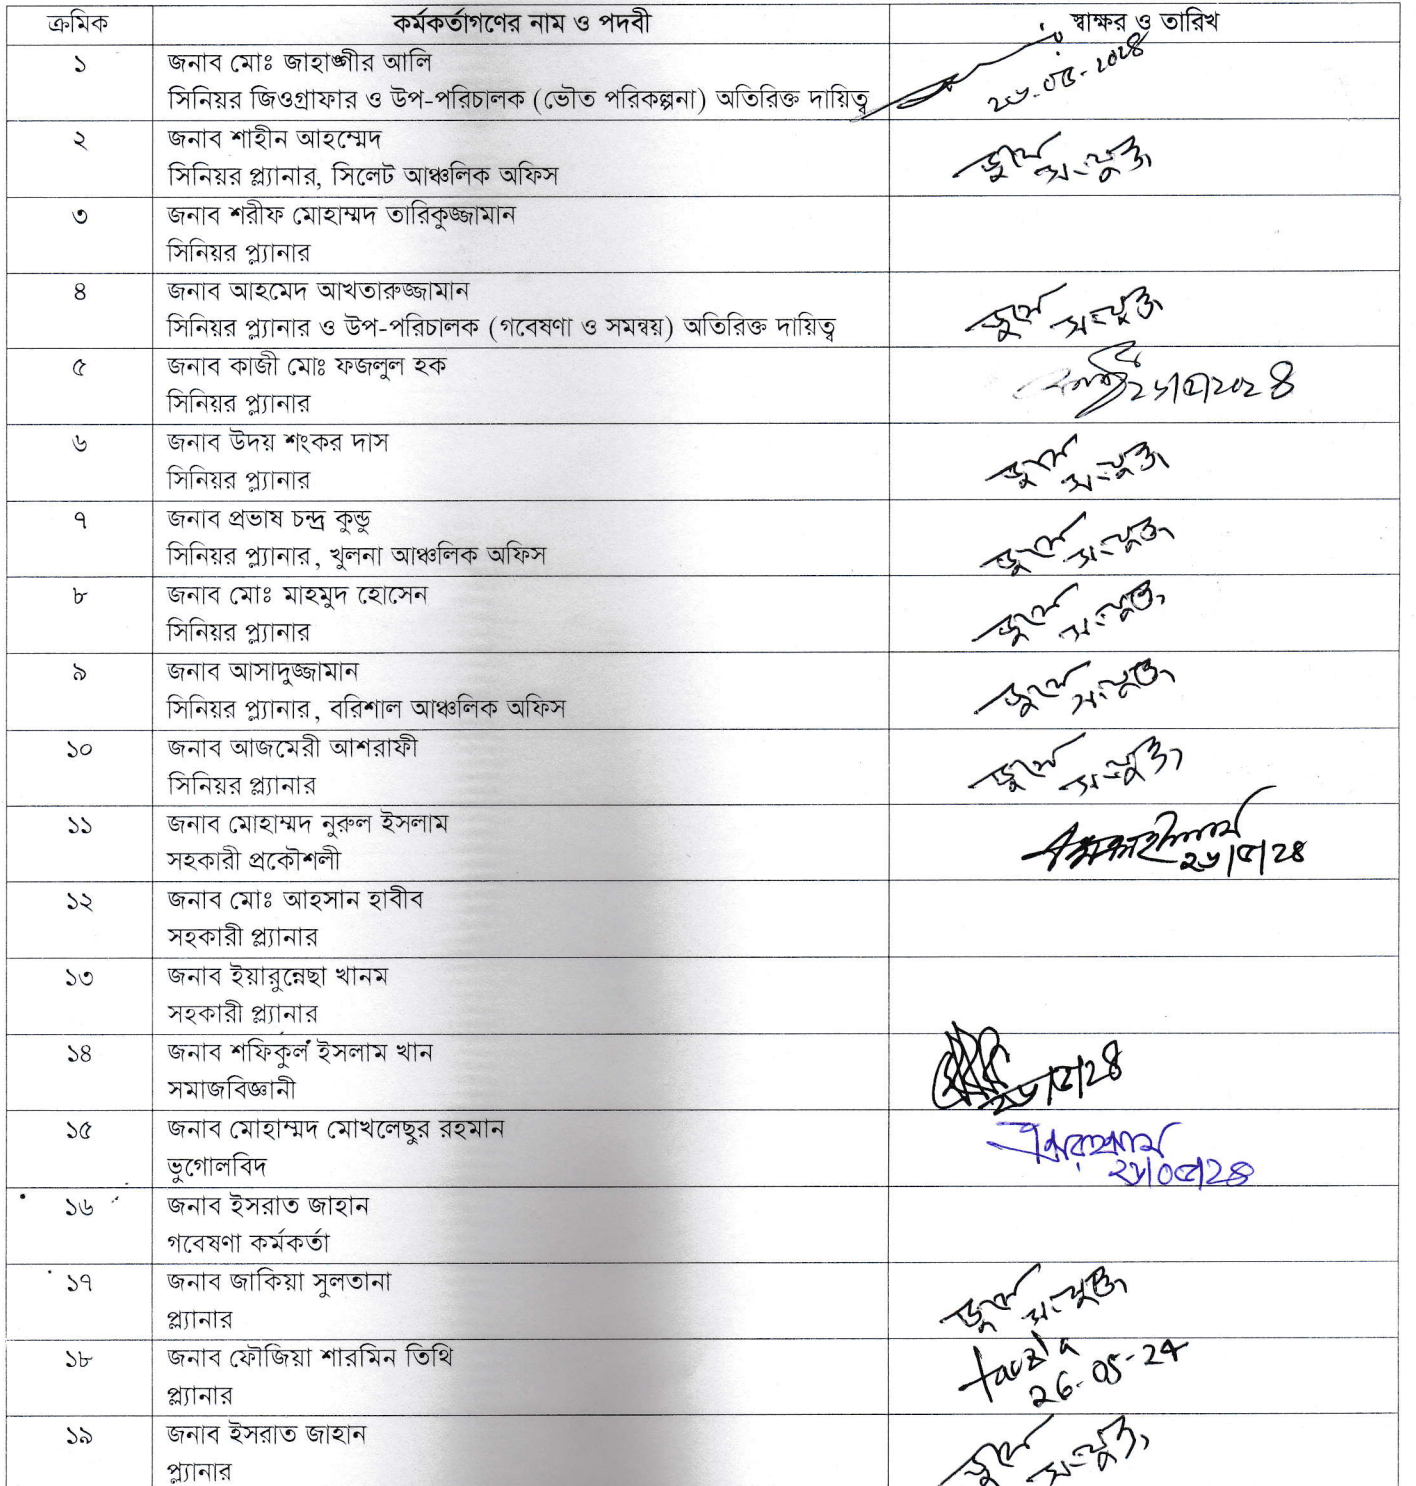 ক্রমিক কর্মকর্তাগণের নাম ও পদবী স্বাক্ষর ও তারিখ
১ জনাব মোঃ জাহাঙ্গীর আলি
সিনিয়র জিওগ্রাফার ও উপ-পরিচালক (ভৌত পরিকল্পনা) অতিরিক্ত দায়িত্ব ২৬-০৫-২০২৪
২ জনাব শাহীন আহম্মেদ
সিনিয়র প্ল্যানার, সিলেট আঞ্চলিক অফিস জুমে সংযুক্ত
৩ জনাব শরীফ মোহাম্মদ তারিকুজ্জামান
সিনিয়র প্ল্যানার
৪ জনাব আহমেদ আখতারুজ্জামান
সিনিয়র প্ল্যানার ও উপ-পরিচালক (গবেষণা ও সমন্বয়) অতিরিক্ত দায়িত্ব জুমে সংযুক্ত
৫ জনাব কাজী মোঃ ফজলুল হক
সিনিয়র প্ল্যানার ২৬/৫/২০২৪
৬ জনাব উদয় শংকর দাস
সিনিয়র প্ল্যানার জুমে সংযুক্ত
৭ জনাব প্রভাষ চন্দ্র কুন্ডু
সিনিয়র প্ল্যানার, খুলনা আঞ্চলিক অফিস জুমে সংযুক্ত
৮ জনাব মোঃ মাহমুদ হোসেন
সিনিয়র প্ল্যানার জুমে সংযুক্ত
৯ জনাব আসাদুজ্জামান
সিনিয়র প্ল্যানার, বরিশাল আঞ্চলিক অফিস জুমে সংযুক্ত
১০ জনাব আজমেরী আশরাফী
সিনিয়র প্ল্যানার জুমে সংযুক্ত
১১ জনাব মোহাম্মদ নুরুল ইসলাম
সহকারী প্রকৌশলী ২৬/৫/২৪
১২ জনাব মোঃ আহসান হাবীব
সহকারী প্ল্যানার
১৩ জনাব ইয়ারুন্নেছা খানম
সহকারী প্ল্যানার
১৪ জনাব শফিকুল ইসলাম খান
সমাজবিজ্ঞানী ২৬/৫/২৪
১৫ জনাব মোহাম্মদ মোখলেছুর রহমান
ভুগোলবিদ ২৬/০৫/২৪
১৬ জনাব ইসরাত জাহান
গবেষণা কর্মকর্তা
১৭ জনাব জাকিয়া সুলতানা
প্ল্যানার জুমে সংযুক্ত
১৮ জনাব ফৌজিয়া শারমিন তিথি fauzia
প্ল্যানার 26-05-24
১৯ জনাব ইসরাত জাহান
প্ল্যানার জুমে সংযুক্ত